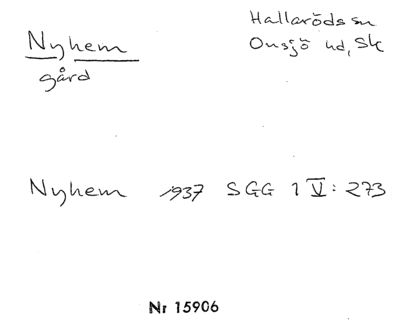 Nyhem
gård
Hallaröds sn
Onsjö hd, Sk
Nyhem 1937 SGG 1 V: 273
Nr 15906